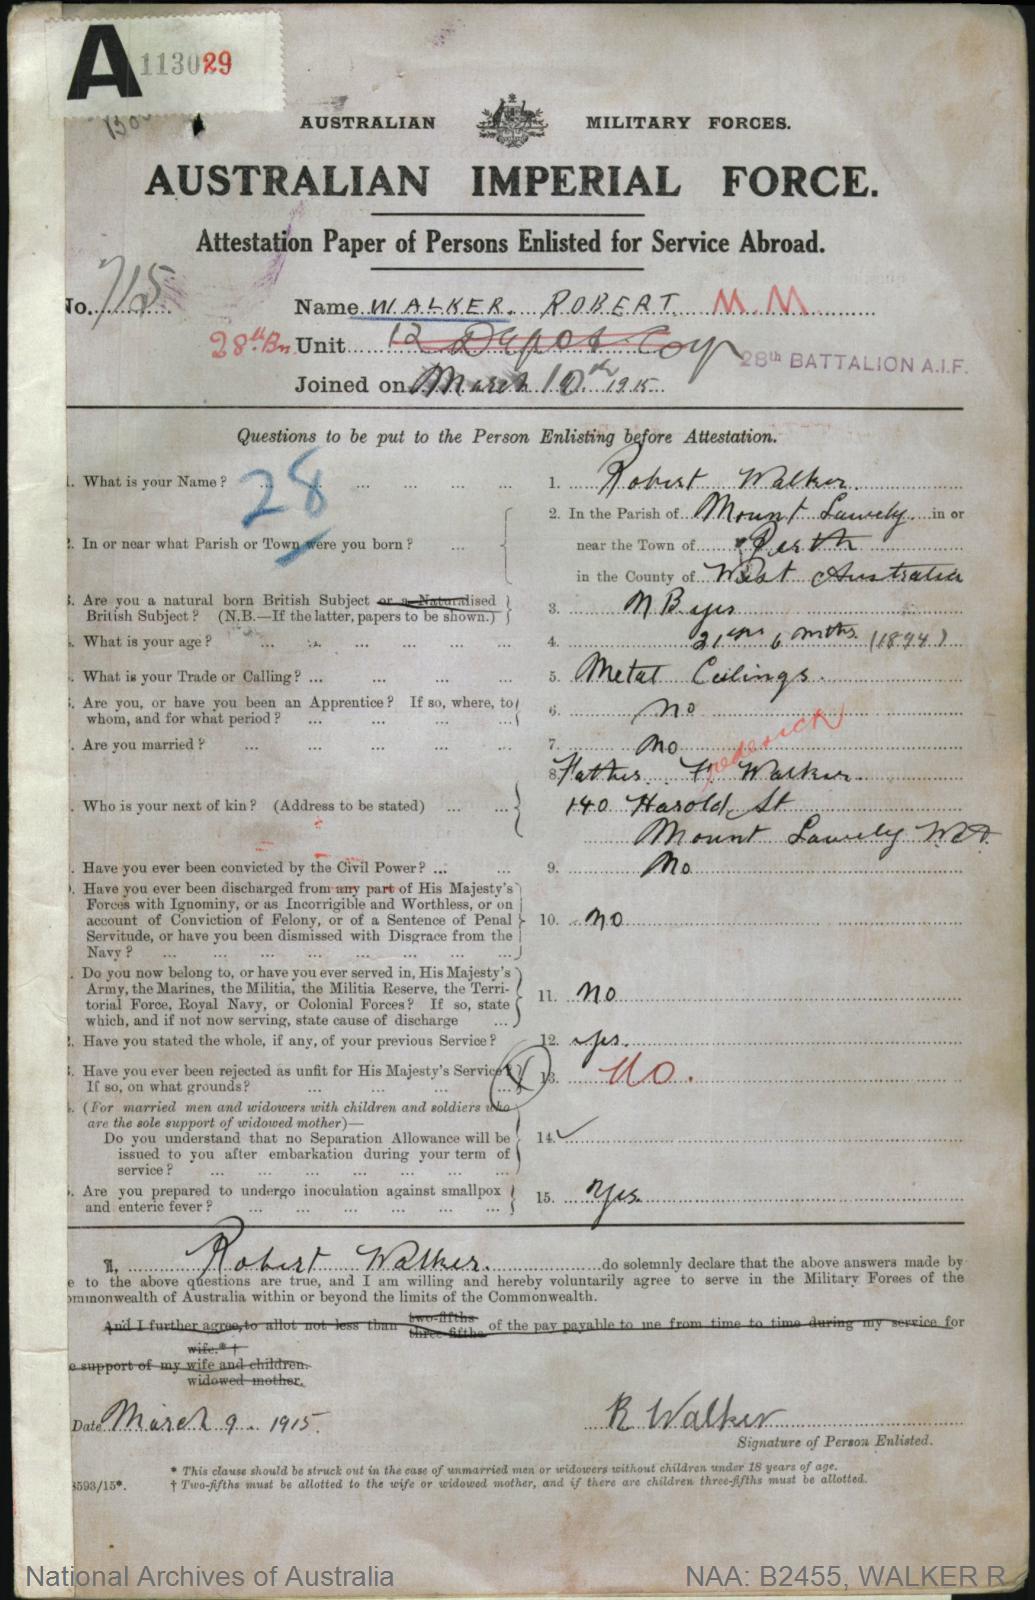 A 113029
AUSTRALIAN MILITARY FORCES.
AUSTRALIAN IMPERIAL FORCE.
Attestation Paper of Persons Enlisted for Service Abroad.
No. 715 Name WALKER. ROBERT. M.M
28th Bn Unit 12 Depot Coy 28th BATTALION A.I.F.
Joined on March 10th 1915
Questions to be put to the Person Enlisting before Attestation.
28
1. What is your Name? ... ... ... ... 1. Robert Walker.
2. In or near what Parish or Town were you born? ... 2. In the Parish of Mount Lawely in or
near the Town of Perth
in the County of West Australia
3. Are you a natural born British Subject or a Naturalised
British Subject? (N.B.—If the latter, papers to be shown.) 3. N.B yes
4. What is your age? ... ... ... ... ... 4. 21 yrs 6 mths. (1894)
5. What is your Trade or Calling? ... ... ... ... 5. Metal Ceilings.
6. Are you, or have you been an Apprentice? If so, where, to
whom, and for what period? ... ... ... 6. no
7. Are you married? ... ... ... ... ... 7. no
8. Father F. rederick Walker.
Who is your next of kin? (Address to be stated) ... ... 140 Harold St
Mount Lawely W.A.
9. Have you ever been convicted by the Civil Power? ... ... 9. No
Have you ever been discharged from any part of His Majesty's
Forces with Ignominy, or as Incorrigible and Worthless, or on
account of Conviction of Felony, or of a Sentence of Penal 10. no
Servitude, or have you been dismissed with Disgrace from the
Navy? ... ... ... ... ... ... ...
Do you now belong to, or have you ever served in, His Majesty's
Army, the Marines, the Militia, the Militia Reserve, the Terri-
torial Force, Royal Navy, or Colonial Forces? If so, state 11. no
which, and if not now serving, state cause of discharge ...
2. Have you stated the whole, if any, of your previous Service? 12. yes.
Have you ever been rejected as unfit for His Majesty's Service?
If so, on what grounds? ... ... ... ... 13. No.
(For married men and widowers with children and soldiers who
are the sole support of widowed mother)—
Do you understand that no Separation Allowance will be 14. ✓
issued to you after embarkation during your term of
service? ... ... ... ... ... ...
Are you prepared to undergo inoculation against smallpox
and enteric fever? ... ... ... ... ... ... 15. Yes.
I, Robert Walker. do solemnly declare that the above answers made by
e to the above questions are true, and I am willing and hereby voluntarily agree to serve in the Military Forces of the
ommonwealth of Australia within or beyond the limits of the Commonwealth.
And I further agree to allot not less than two-fifths three-fifths of the pay payable to me from time to time during my service for
wife.*†
e support of my wife and children.
widowed mother.
Date March 9. 1915. R Walker
Signature of Person Enlisted.
* This clause should be struck out in the case of unmarried men or widowers without children under 18 years of age.
3593/15*. † Two-fifths must be allotted to the wife or widowed mother, and if there are children three-fifths must be allotted.
National Archives of Australia NAA: B2455, WALKER R